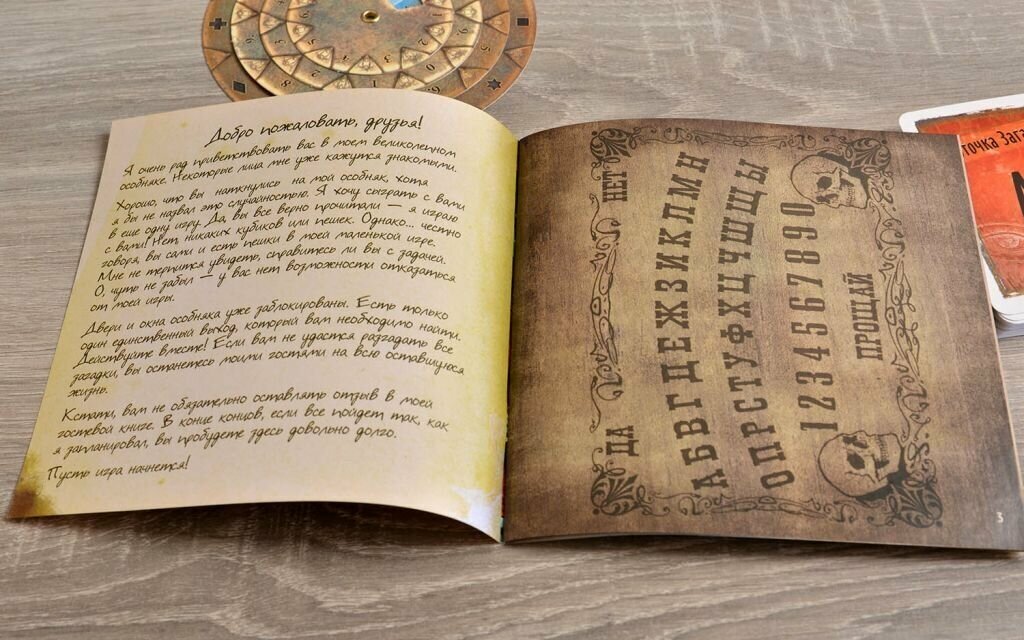 Добро пожаловать, друзья!
Я очень рад приветствовать вас в моем великолепном
особняке. Некоторые лица мне уже кажутся знакомыми.
Хорошо, что вы наткнулись на мой особняк, хотя
я бы не назвал это случайностью. Я хочу сыграть с вами
в еще одну игру. Да, вы все верно прочитали — я играю
с вами! Нет никаких кубиков или пешек. Однако... честно
говоря, вы сами и есть пешки в моей маленькой игре.
Мне не терпится увидеть, справитесь ли вы с задачей.
О, чуть не забыл — у вас нет возможности отказаться
от моей игры.
Двери и окна особняка уже заблокированы. Есть только
один единственный выход, который вам необходимо найти.
Действуйте вместе! Если вам не удастся разгадать все
загадки, вы останетесь моими гостями на всю оставшуюся
жизнь.
Кстати, вам не обязательно оставлять отзыв в моей
гостевой книге. В конце концов, если все пойдет так, как
я запланировал, вы пробудете здесь довольно долго.
Пусть игра начнется!
ДА НЕТ
АБВГДЕЖЗИКЛМН
ОПРСТУФХЦЧШЩЫ
1234567890
ПРОЩАЙ
3